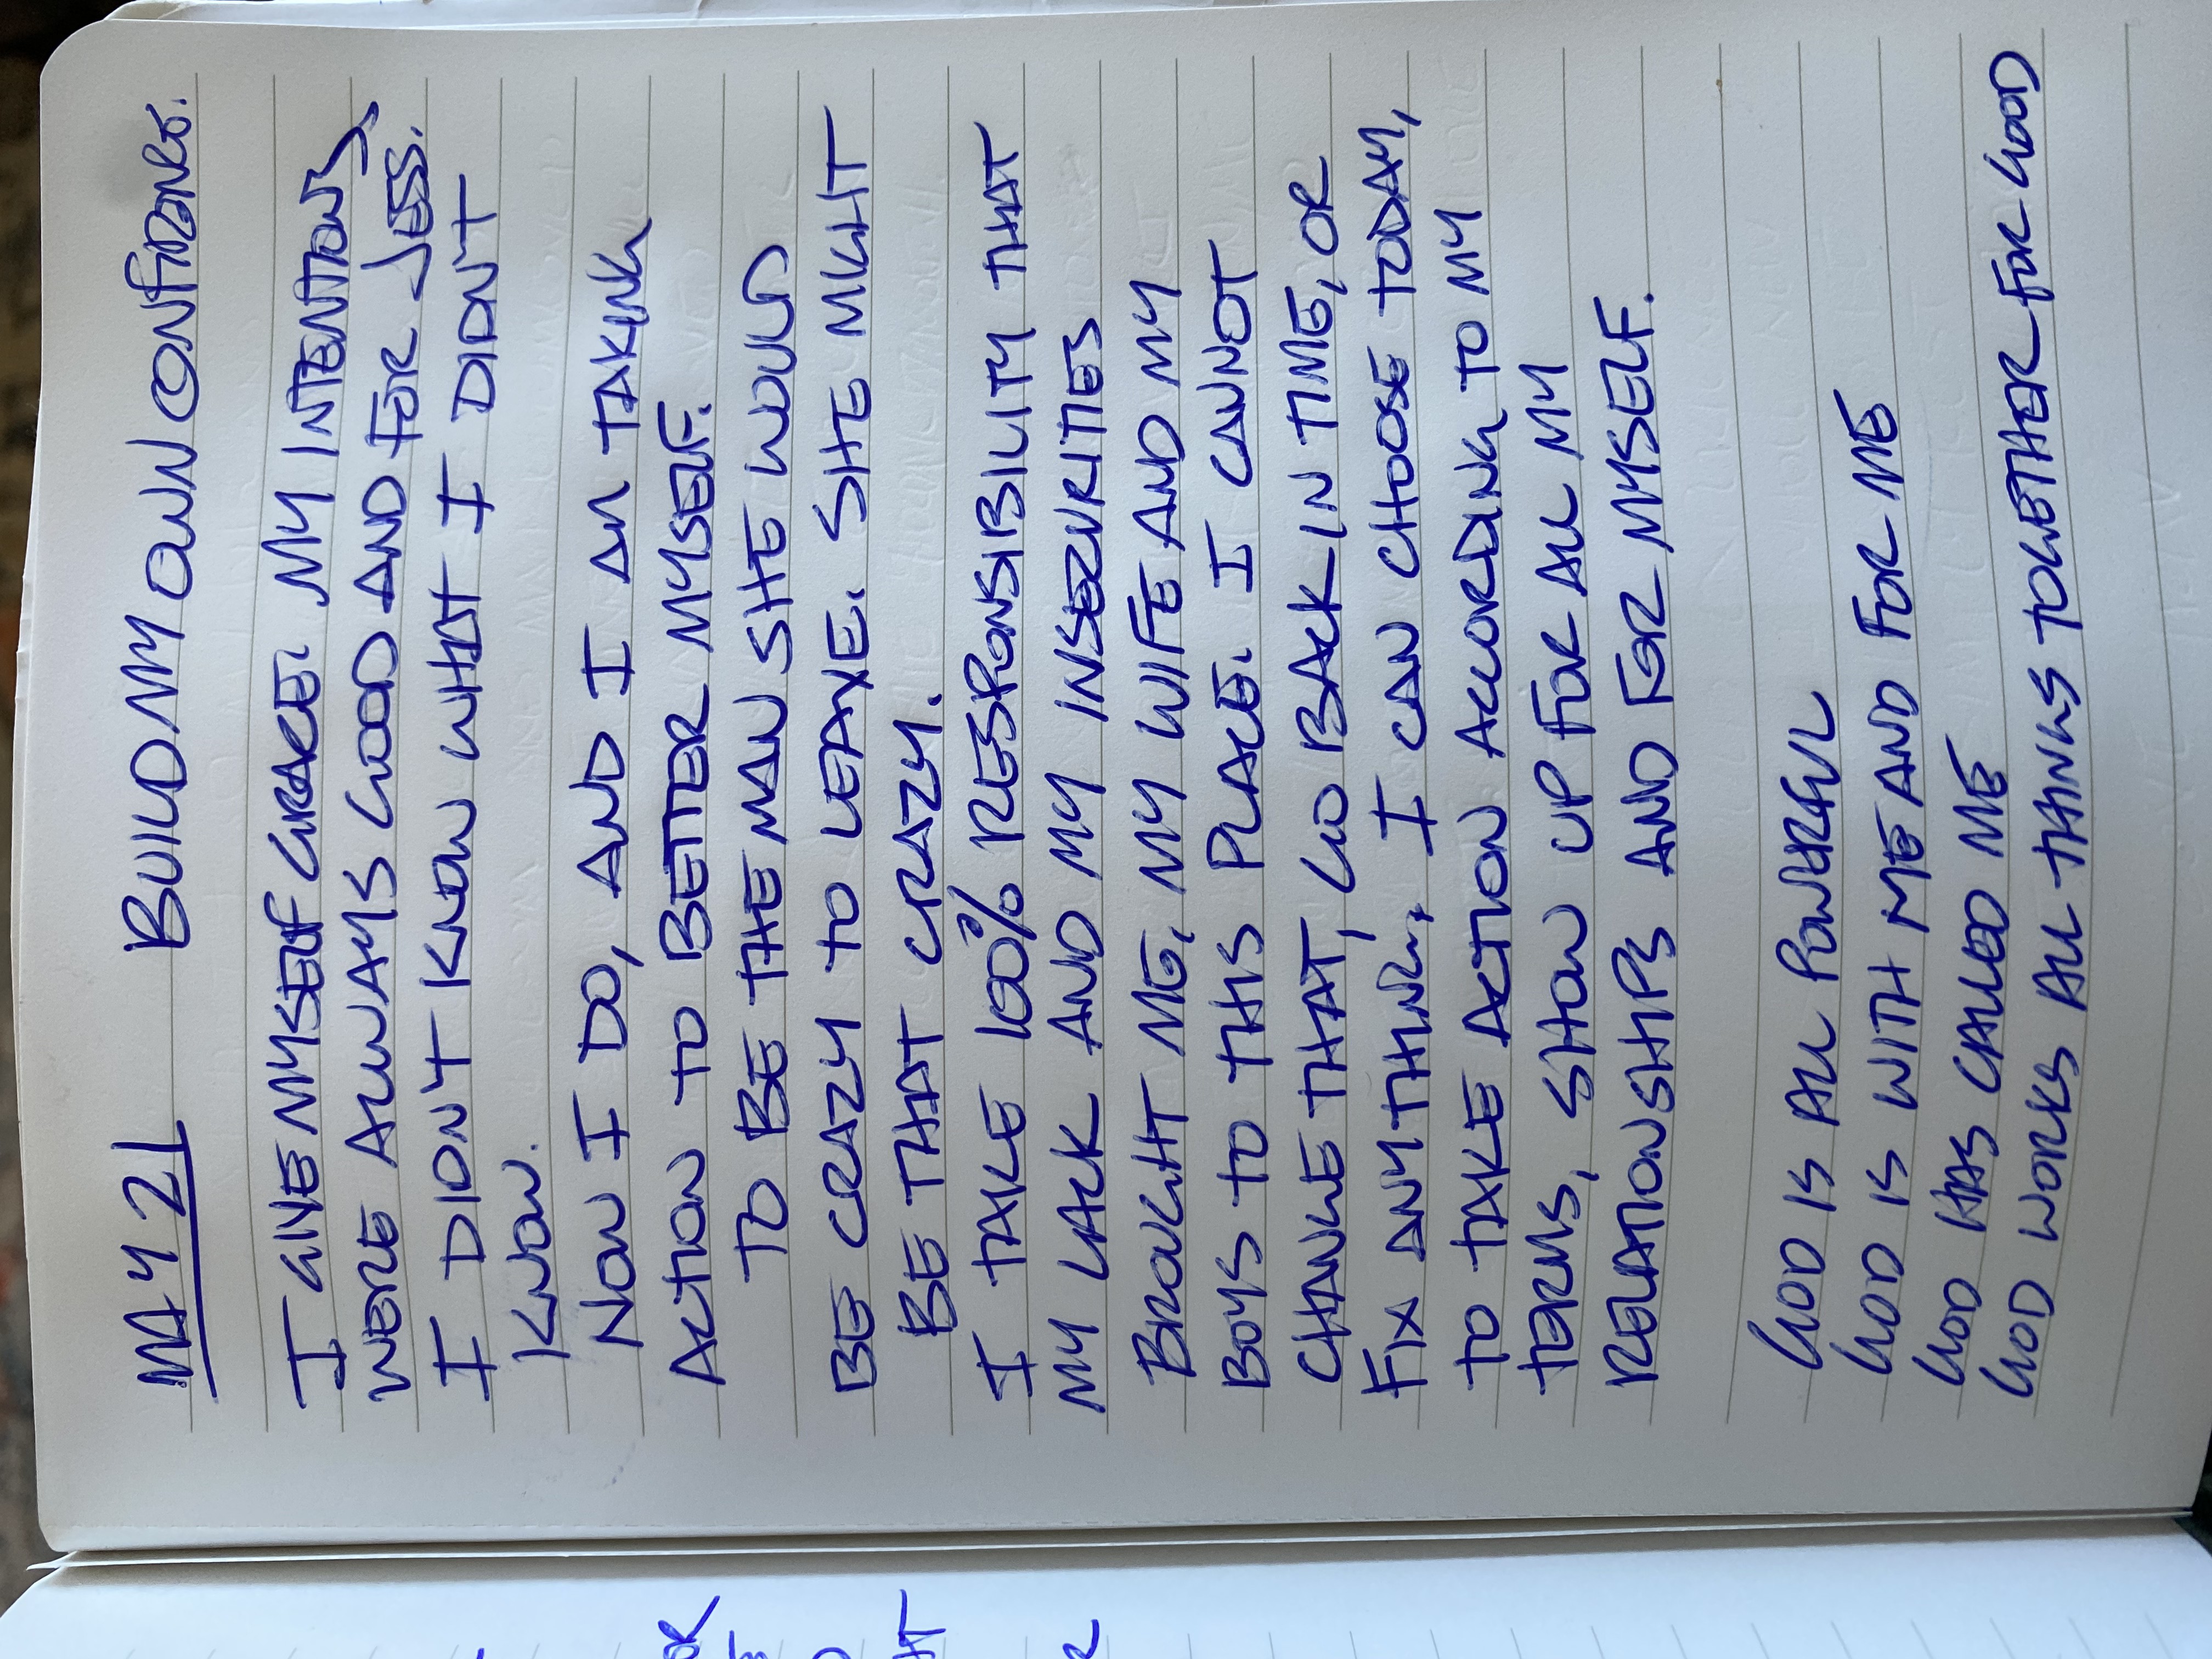 MAY 21 BUILD MY OWN CONFIDENCE.
I GIVE MYSELF GRACE. MY INTENTIONS
WERE ALWAYS GOOD AND FOR JESS.
I DIDNT KNOW WHAT I DIDNT
KNOW.
NOW I DO, AND I AM TAKING
ACTION TO BETTER MYSELF.
TO BE THE MAN SHE WOULD
BE CRAZY TO LEAVE. SHE MIGHT
BE THAT CRAZY.
I TAKE 100% RESPONSIBILITY THAT
MY LACK AND MY INSECURITIES
BROUGHT ME, MY WIFE AND MY
BOYS TO THIS PLACE. I CANNOT
CHANGE THAT, GO BACK IN TIME, OR
FIX ANYTHING, I CAN CHOOSE TODAY,
TO TAKE ACTION ACCORDING TO MY
TERMS, SHOW UP FOR ALL MY
RELATIONSHIPS AND FOR MYSELF.
GOD IS ALL POWERFUL
GOD IS WITH ME AND FOR ME
GOD HAS CALLED ME
GOD WORKS ALL THINGS TOGETHER FOR GOOD